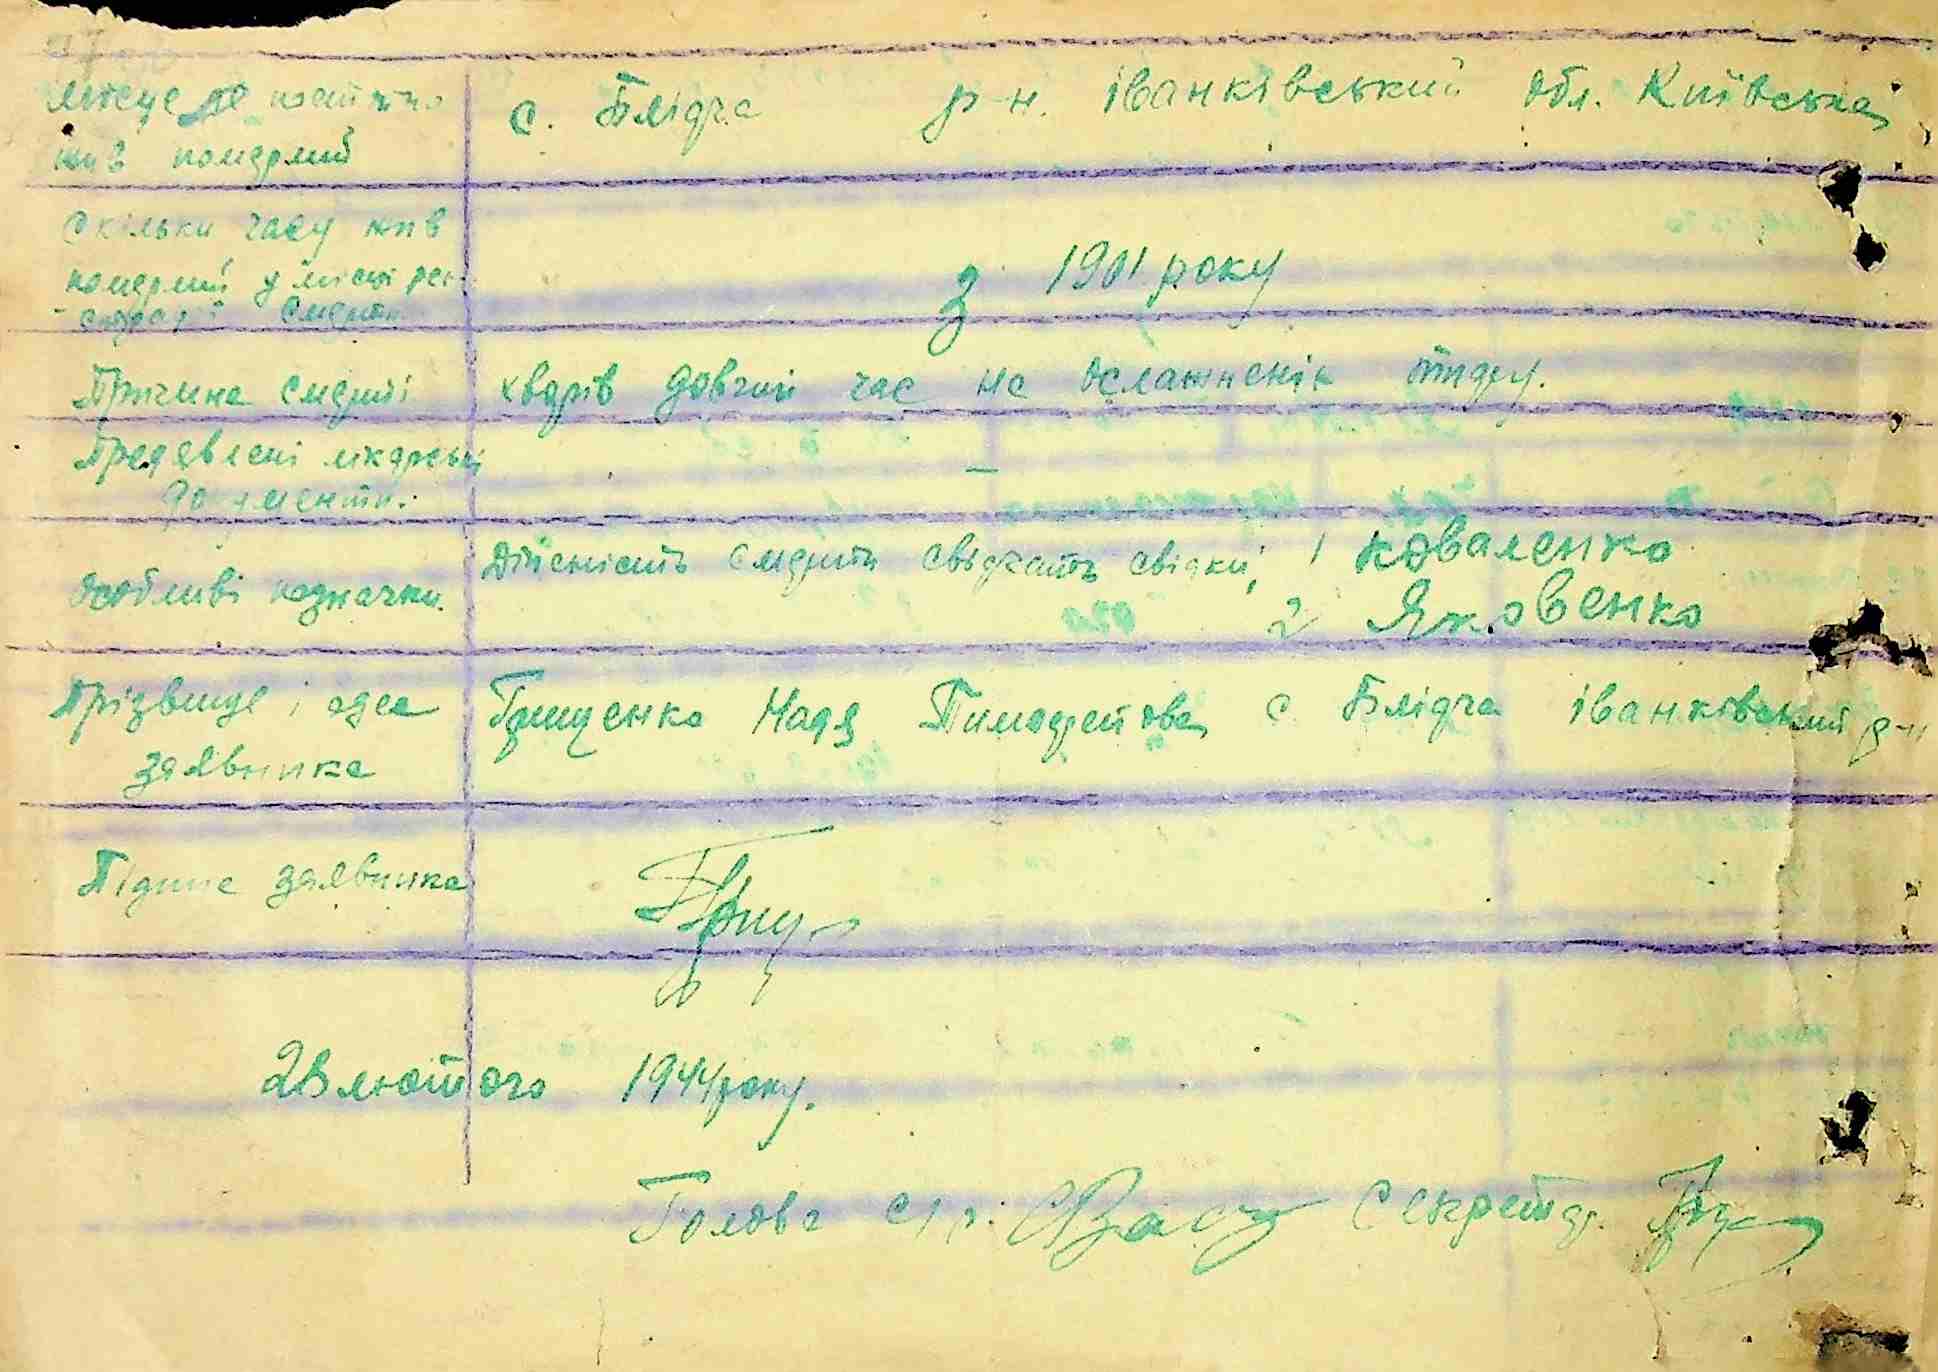 місце де постійно с. Блідча р-н. Іванківський обл. Київська
жив померлий
Скільки часу жив
померлий у місці реє-
страції смерти з 1901 року
Причина смерти хворів довгий час на ослажненія
Предявлені лікарські —
документи.
Особливі позначки. Дійсність смерти свідчать свідки, 1 Коваленко
2 Яковенко
Прізвище і адеса Грищенко Надя Тимофейовна с Блідча Іванківський р-н
заявника
Підпис заявника Грищ
28 лютого 1944 року.
Голова с/р. Секретар.